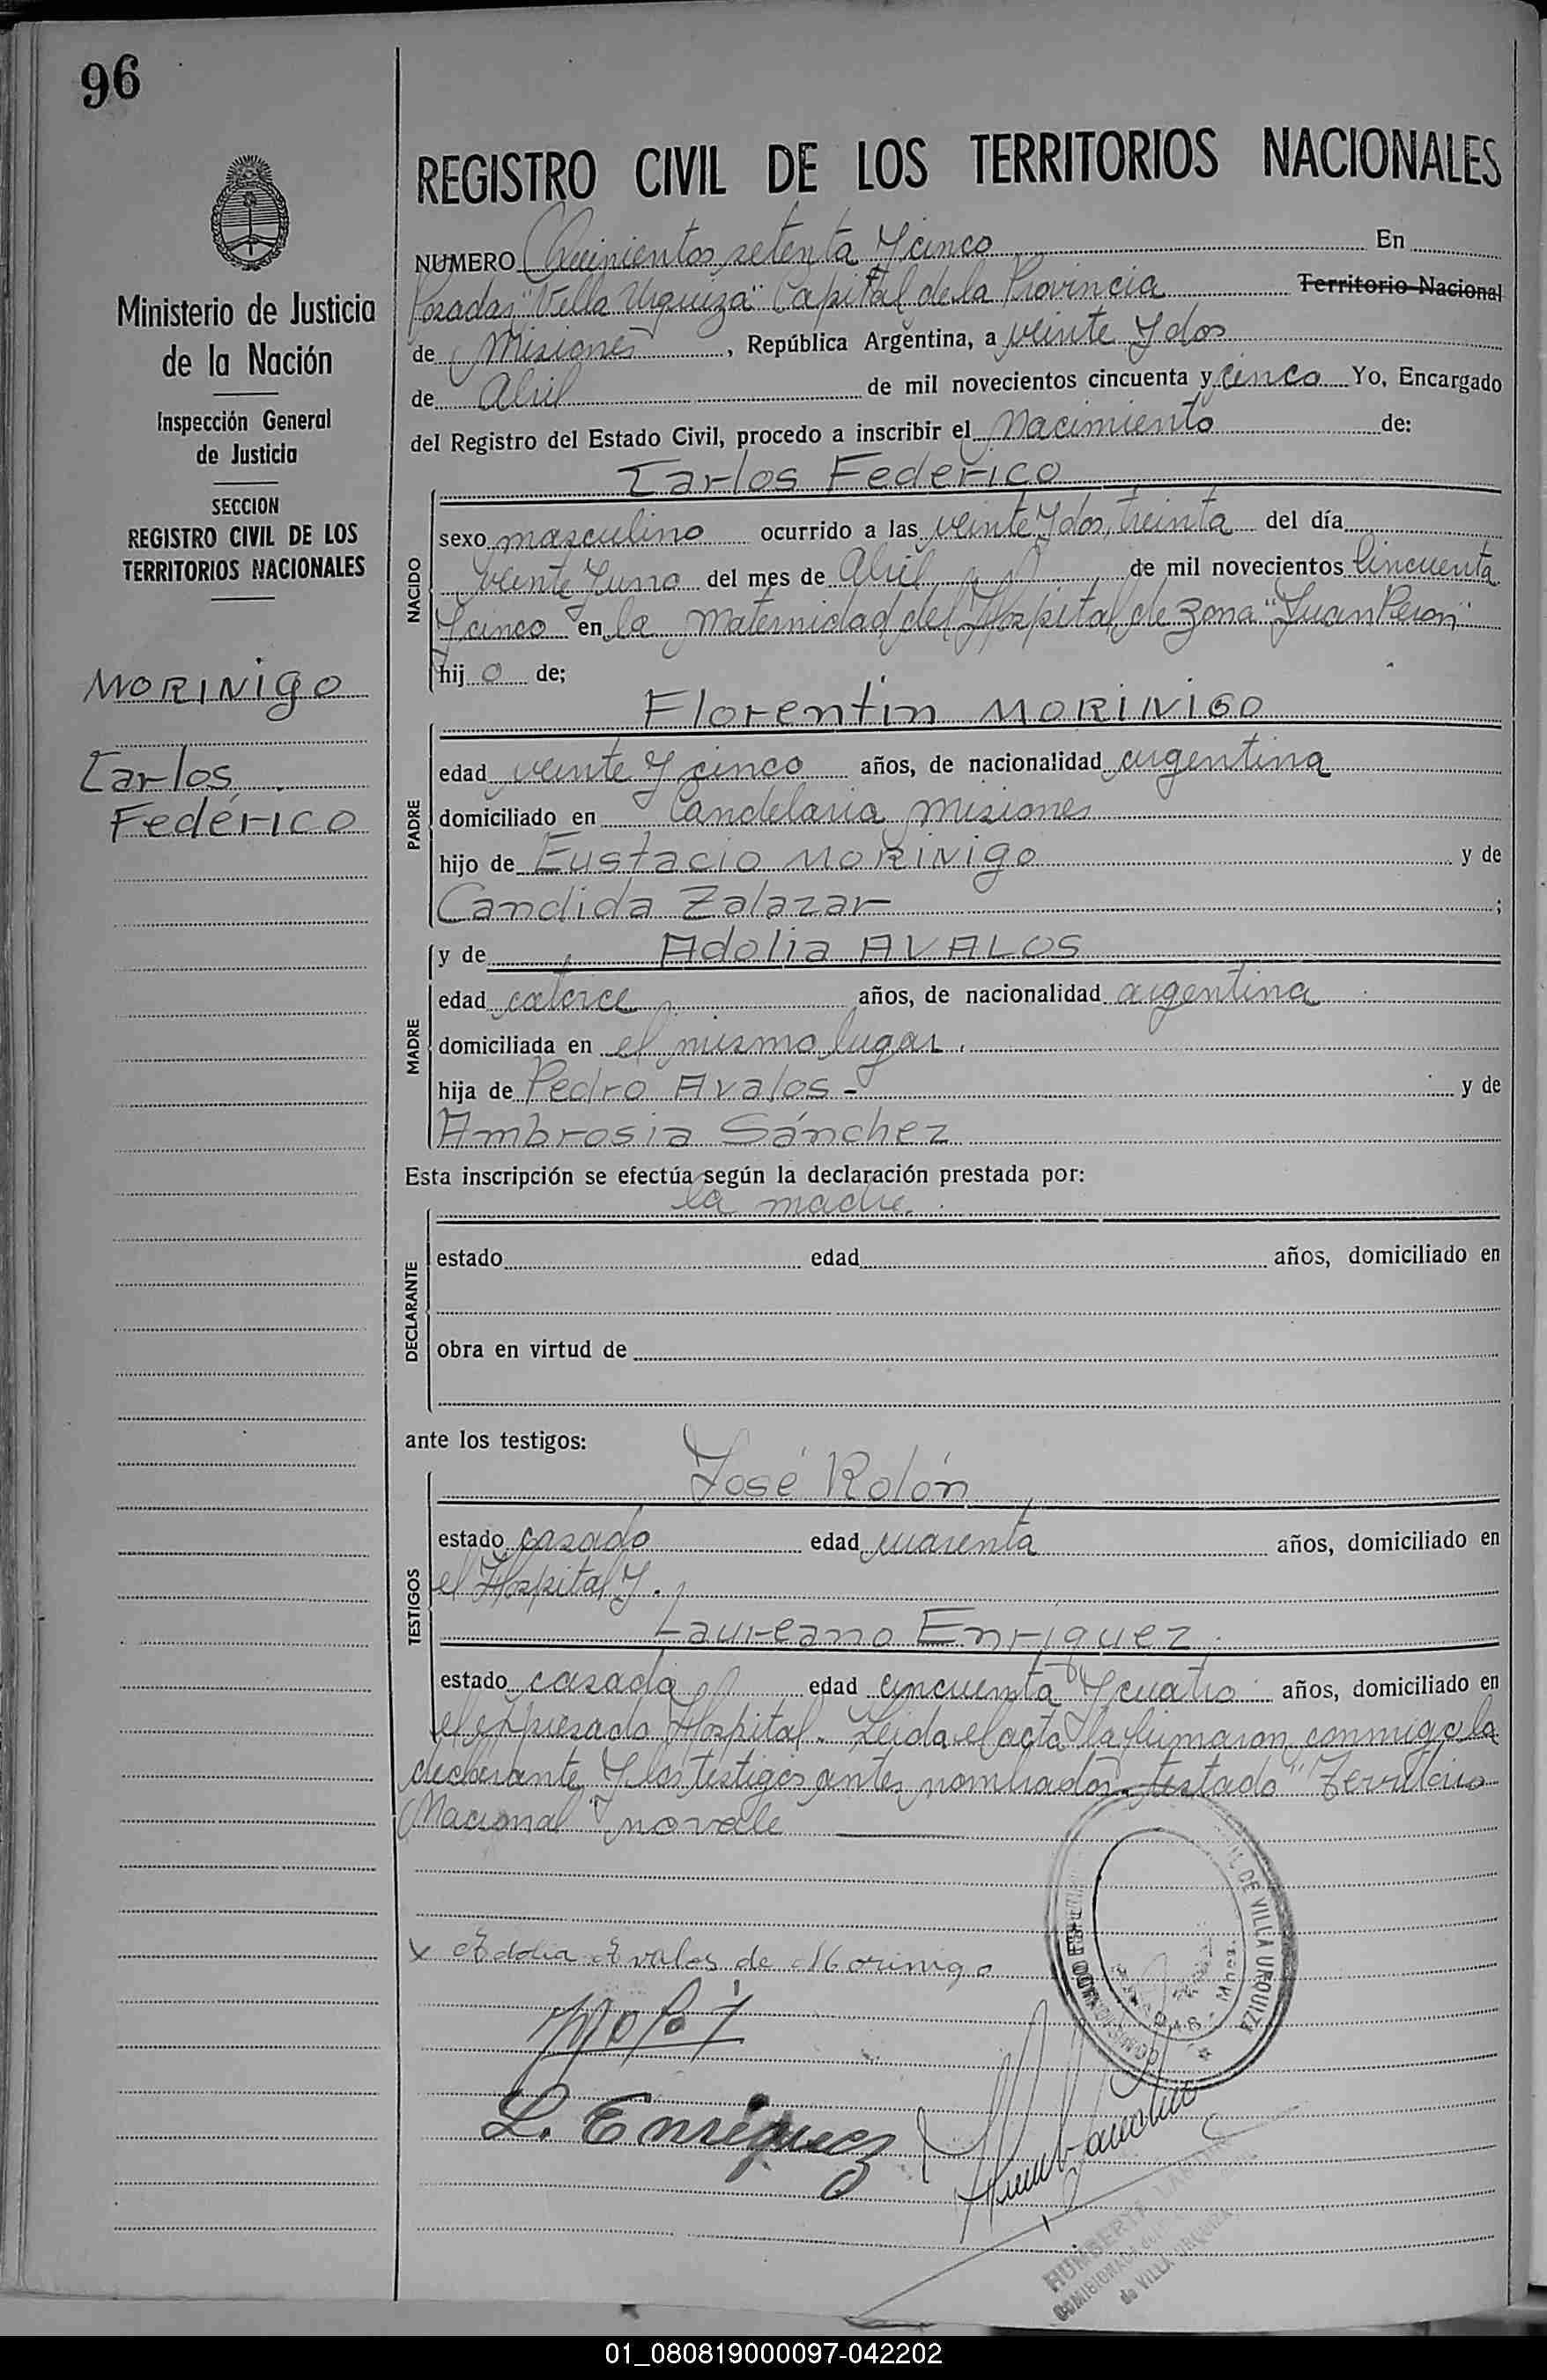 96
REGISTRO CIVIL DE LOS TERRITORIOS NACIONALES
Ministerio de Justicia
de la Nación
Inspección General
de Justicia
SECCION
REGISTRO CIVIL DE LOS
TERRITORIOS NACIONALES
MORINIGO
Carlos
Federico
NUMERO Quinientos setenta y cinco En
Posadas "Villa Urquiza" Capital de la Provincia Territorio Nacional
de Misiones, República Argentina, a veinte y dos
de Abril de mil novecientos cincuenta y cinco Yo, Encargado
del Registro del Estado Civil, procedo a inscribir el Nacimiento de:
Carlos Federico
NACIDO
sexo masculino ocurrido a las veinte y dos, treinta del día
veinte y uno del mes de Abril de mil novecientos cincuenta
y cinco en la Maternidad del Hospital de Zona "Juan Peron"
hijo de;
Florentin MORINIGO
PADRE
edad veinte y cinco años, de nacionalidad argentina
domiciliado en Candelaria Misiones
hijo de Eustacio MORINIGO y de
Candida Zalazar ;
y de Adolia AVALOS
MADRE
edad catorce años, de nacionalidad argentina
domiciliada en el mismo lugar.
hija de Pedro Avalos - y de
Ambrosia Sánchez
Esta inscripción se efectúa según la declaración prestada por:
la madre.
DECLARANTE
estado edad años, domiciliado en
obra en virtud de
ante los testigos:
José Rolón
TESTIGOS
estado casado edad cuarenta años, domiciliado en
el Hospital y.
Laureano Enriquez
estado casado edad cincuenta y cuatro años, domiciliado en
el expresado Hospital. Leida el acta la firmaron conmigo la
declarante y los testigos antes nombrados. testado "Territorio
Nacional" no vale
x Adolia Avalos de Morinigo
L. Enriquez
DE VILLA URQUIZA
HUMBERTO
de VILLA URQUIZA
01_080819000097-042202